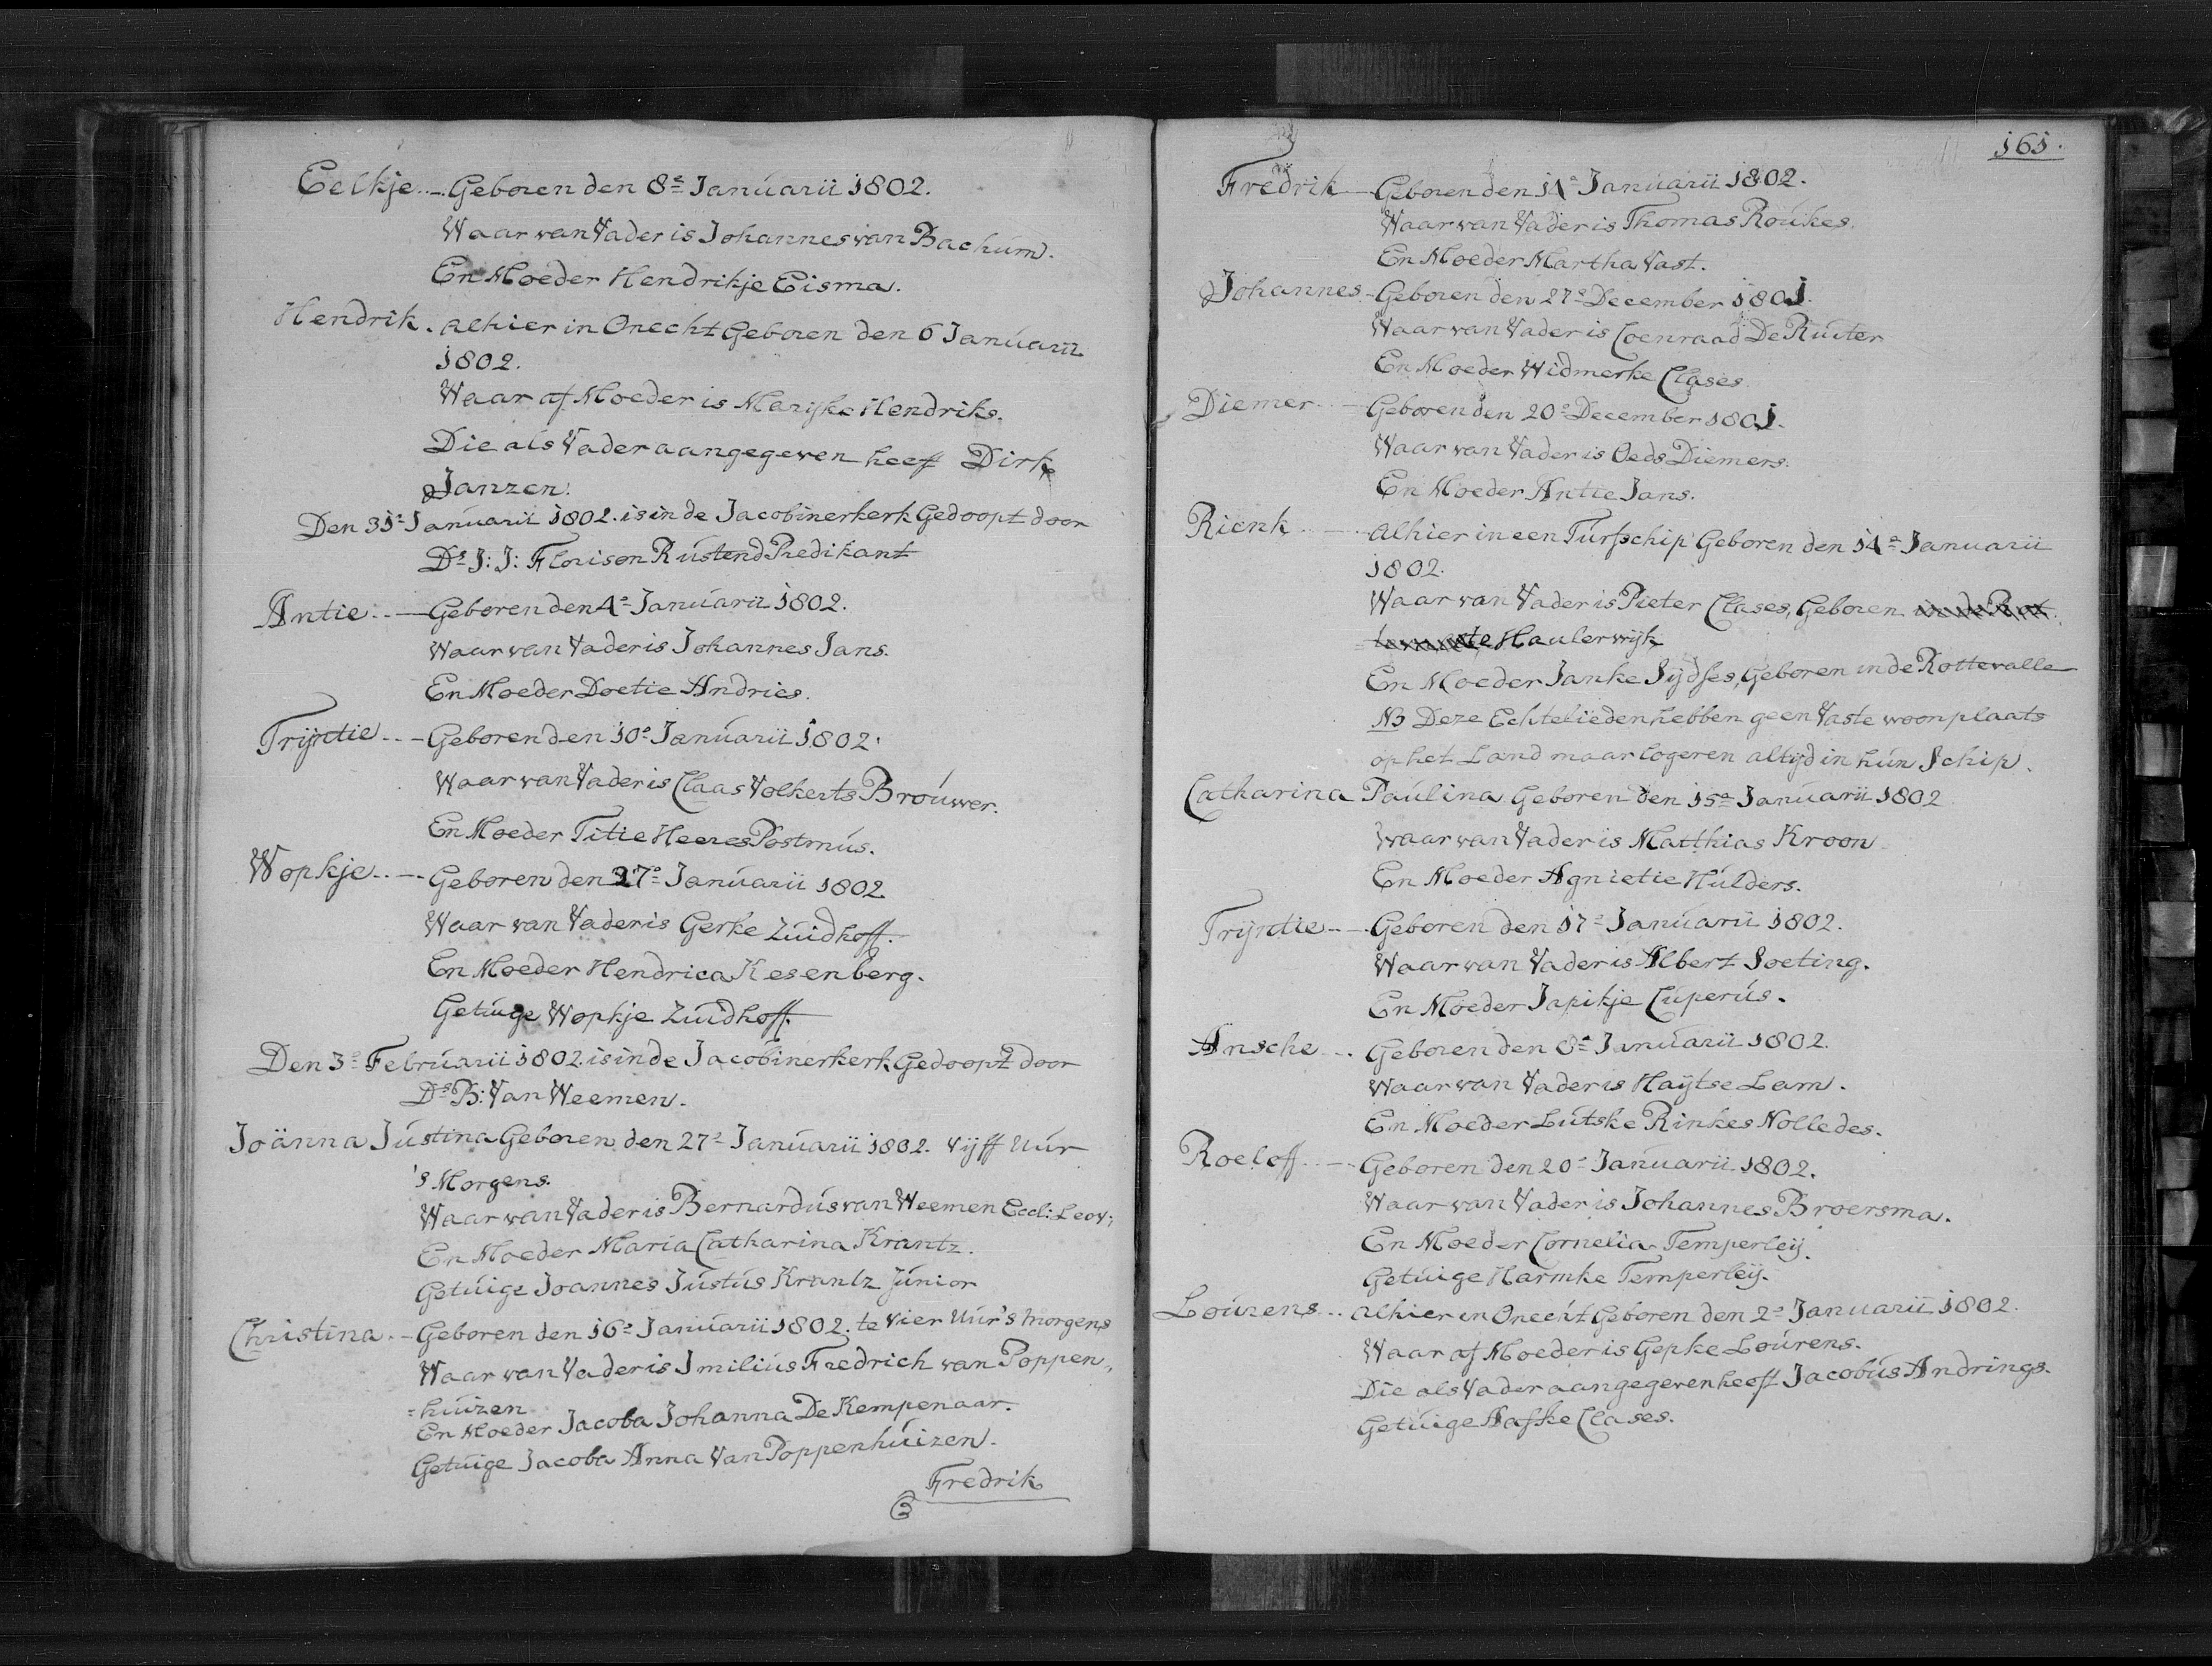 Eelkje..-. Geboren den 8e Januarii 1802.
Waar van Vader is Johannes van Bachum.
En Moeder Hendrikje Eisma.
Hendrik. Alhier in Onecht Geboren den 6 Januarii
1802.
Waar af Moeder is Marijke Hendriks.
Die als Vader aangegeven heeft Dirk
Janzen.
Den 31e Januarii 1802. is in de Jacobinerkerk Gedoopt door
Ds J: J: Florison Rustend Predikant
Antie..- Geboren den 4e Januarii 1802.
Waar van Vader is Johannes Jans.
En Moeder Doetie Andries.
Trijntie..- Geboren den 10e Januarii 1802.
Waar van Vader is Claas Volkerts Brouwer.
En Moeder Titie Heeres Postmus.
Wopkje..-. Geboren den 27e Januarii 1802
Waar van Vader is Gerke Zuidhoff.
En Moeder Hendrica Kesenberg.
Getuige Wopkje Zuidhoff.
Den 3e Februarii 1802. is in de Jacobinerkerk Gedoopt door
Ds B: Van Weemen.
Joänna Justina Geboren den 27e Januarii 1802. Vijff Uur
's Morgens.
Waar van Vader is Bernardus van Weemen Eccl: Leov:
En Moeder Maria Catharina Krantz.
Getuige Joannes Justus Krantz Junior
Christina.- Geboren den 16e Januarii 1802. te Vier Uur 's morgens
Waar van Vader is Imilius Fredrich van Poppen„
=huizen
En Moeder Jacoba Johanna De Kempenaar.
Getuige Jacoba Anna Van Poppenhuizen.
Fredrik
161.
Fredrik - Geboren den 11e Januarii 1802.
Waar van Vader is Thomas Roukes.
En Moeder Martha Vast.
Johannes - Geboren den 27e December 1801.
Waar van Vader is Coenraad De Ruiter
En Moeder Widmerke Clases
Diemer..- Geboren den 20e December 1801.
Waar van Vader is Oeds Diemers.
En Moeder Antie Jans.
Rienk..- Alhier in een Turfschip Geboren den 14e Januarii
1802.
Waar van Vader is Pieter Clases, Geboren
te Haulerwijk
En Moeder Janke Sijdses, Geboren in de Rottevalle
NB Deze Echtelieden hebben geen Vaste woonplaats
op het Land maar logeren altijd in hun Schip.
Catharina Paulina Geboren den 15e Januarii 1802
Waar van Vader is Matthias Kroon
En Moeder Agnietie Hulders.
Trijntie..-. Geboren den 17e Januarii 1802.
Waar van Vader is Albert Soeting.
En Moeder Japikje Cuperus.
Ansche..-. Geboren den 8e Januarii 1802.
Waar van Vader is Haijtse Lam.
En Moeder Lutske Rinkes Nolledes.
Roeloff..-. Geboren den 20e Januarii 1802.
Waar van Vader is Johannes Broersma.
En Moeder Cornelia Temperleij.
Getuige Harmke Temperleij.
Lourens.. Alhier in Onecht Geboren den 2e Januarii 1802.
Waar af Moeder is Gepke Lourens.
Die als Vader aangegeven heeft Jacobus Andrings.
Getuige Aafke Clases.